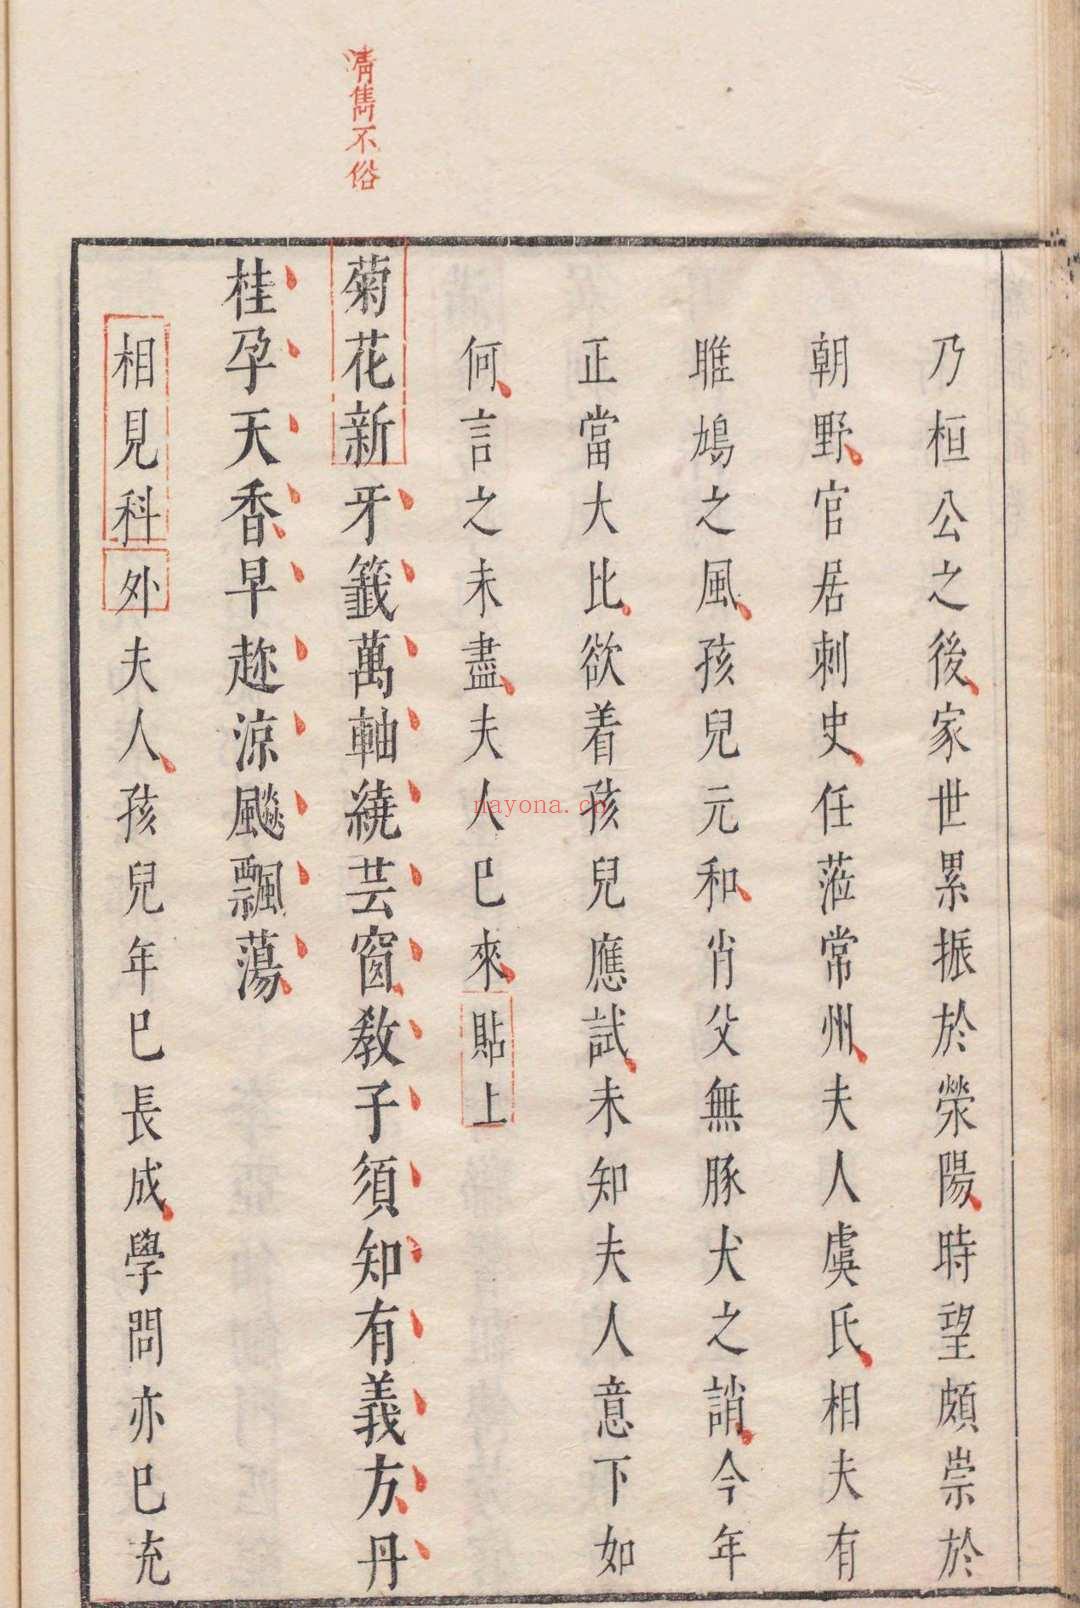 清雋不俗
乃桓公之後家世累振於滎陽時望頗崇於
朝野官居刺史任蒞常州夫人虞氏相夫有
雎鳩之風孩兒元和肖父無豚犬之誚今年
正當大比欲着孩兒應試未知夫人意下如
何言之未盡夫人已來貼上
菊花新牙籤萬軸繞芸窗敎子須知有義方丹
桂孕天香早趂涼飈飄蕩
相見科外夫人孩兒年已長成學問亦已充
nayona.cn